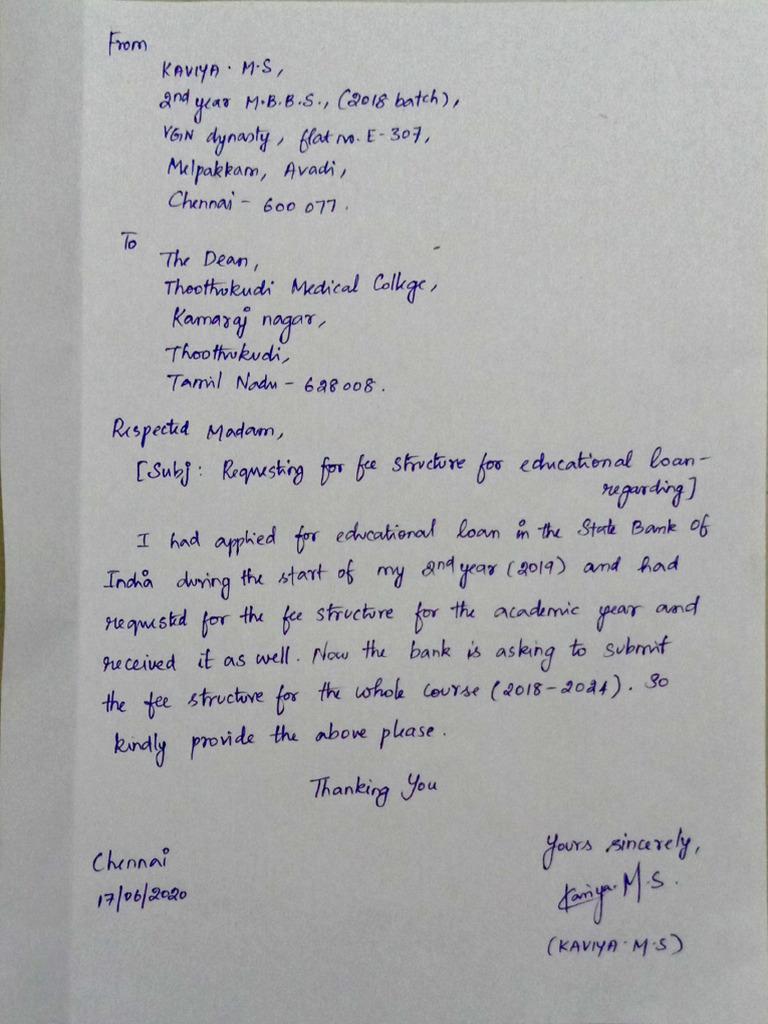 From
KAVIYA. M.S,
2nd year M.B.B.S., (2018 batch),
VGN dynasty, flat no. E-307,
Melpakkam, Avadi,
Chennai - 600 077.
To
The Dean,
Thoothukudi Medical College,
Kamaraj nagar,
Thoothukudi,
Tamil Nadu - 628008.
Respected Madam,
[Subj: Requesting for fee structure for educational loan-
regarding]
I had applied for educational loan in the State Bank of
India during the start of my 2nd year (2019) and had
requested for the fee structure for the academic year and
received it as well. Now the bank is asking to submit
the fee structure for the whole course (2018-2024). So
kindly provide the above please.
Thanking You
Yours sincerely,
Chennai
17/06/2020
Kaviya. M.S.
(KAVIYA. M.S)